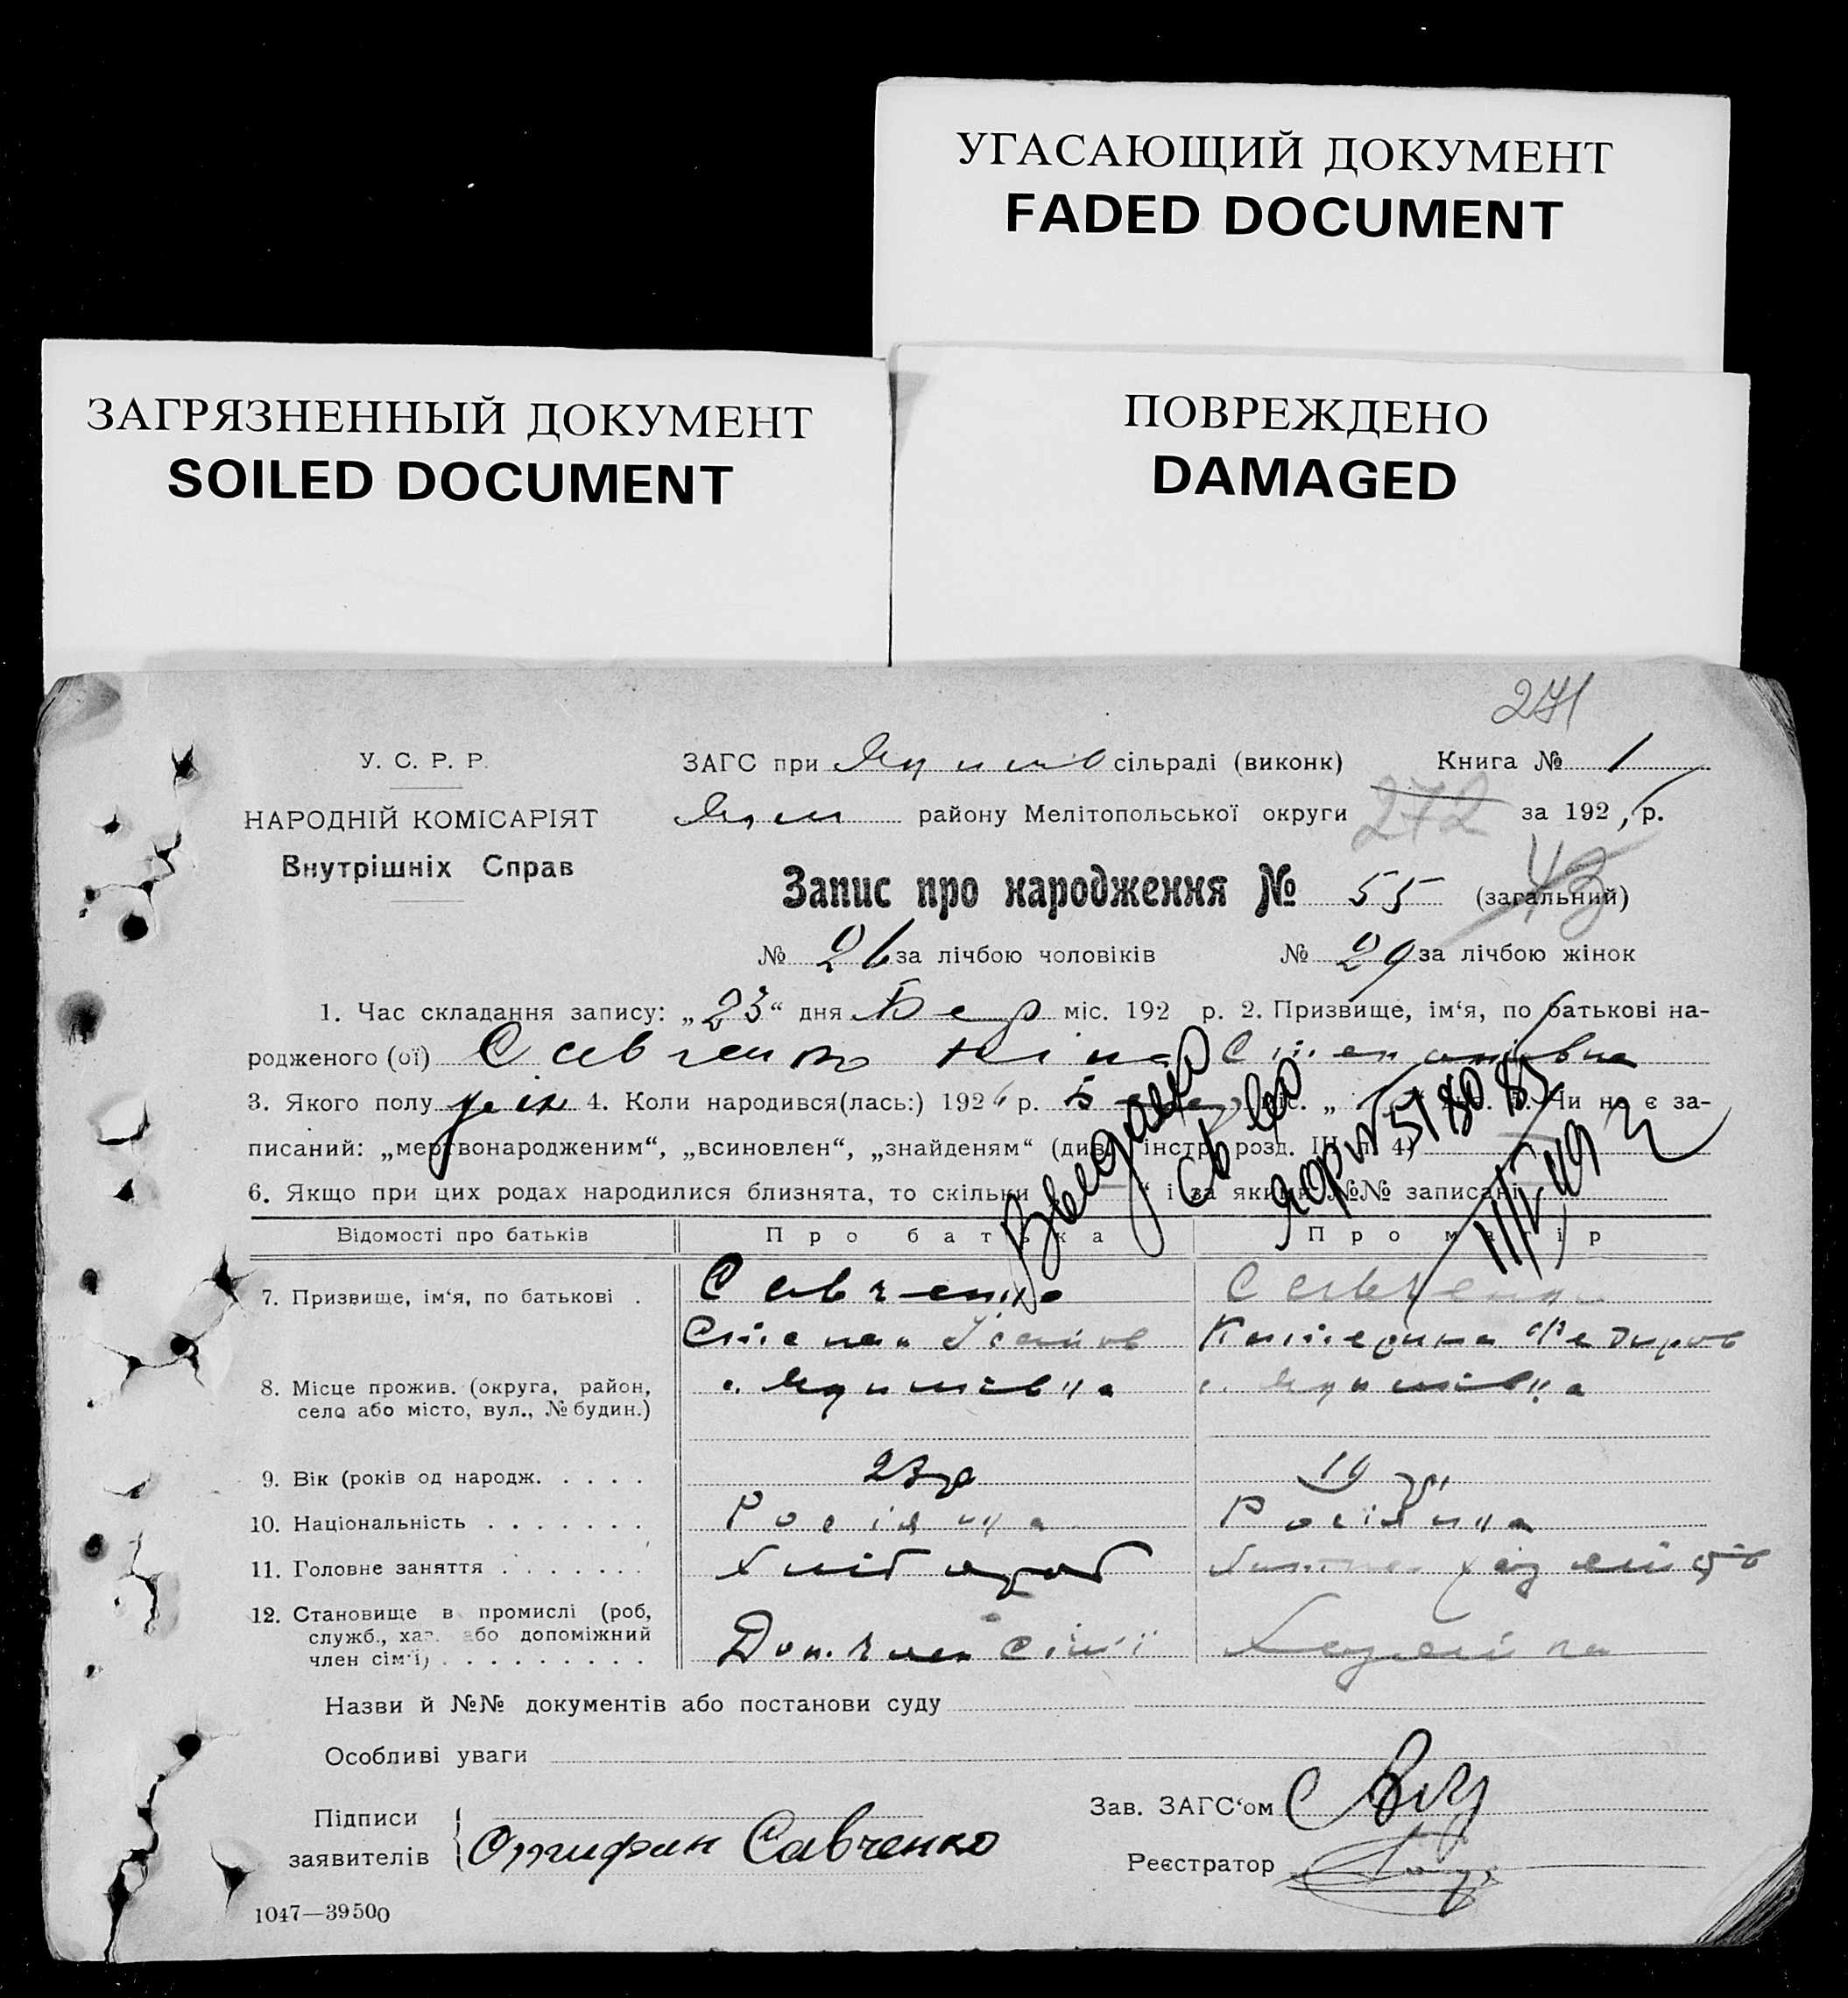 УГАСАЮЩИЙ ДОКУМЕНТ
FADED DOCUMENT
ЗАГРЯЗНЕННЫЙ ДОКУМЕНТ
SOILED DOCUMENT
ПОВРЕЖДЕНО
DAMAGED
271
У. С. Р. Р.
ЗАГС при сільраді (виконк) Книга № 1
НАРОДНІЙ КОМІСАРІЯТ
району Мелітопольської округи 272 за 192 р.
Внутрішніх Справ
Запис про народження № 55 (загальний) 43
№ 26 за лічбою чоловіків № 29 за лічбою жінок
1. Час складання запису: „23“ дня Бер міс. 192 р. 2. Призвище, ім‘я, по батькові на-
родженого (ої) Савченко Ніна Степанівна
3. Якого полу жін 4. Коли народився(лась:) 192 р. міс. „ Чи не є за-
писаний: „мертвонародженим“, „всиновлен“, „знайденям“ (див. інстр. розд. ІІІ п. 4)
6. Якщо при цих родах народилися близнята, то скільки “ і за якими №№ записані
Відомості про батьків Про батька Про матір
7. Призвище, ім‘я, по батькові . Савченко Савченко
Степан Катерина Федоров
8. Місце прожив. (округа, район,
село або місто, вул., № будин.)
9. Вік (років од народж. . . . . 27 р 19 р.
10. Національність . . . . . . . Росіянка Росіянка
11. Головне заняття . . . . . . . Хлібороб
12. Становище в промислі (роб,
служб., хаз. або допоміжний
член сім‘ї) . . . . . . . . . Доп. член сім'ї Хазяйка
Назви й №№ документів або постанови суду
Особливі уваги
Підписи
заявителів Савченко
Зав. ЗАГС‘ом
Реєстратор
1047—39500